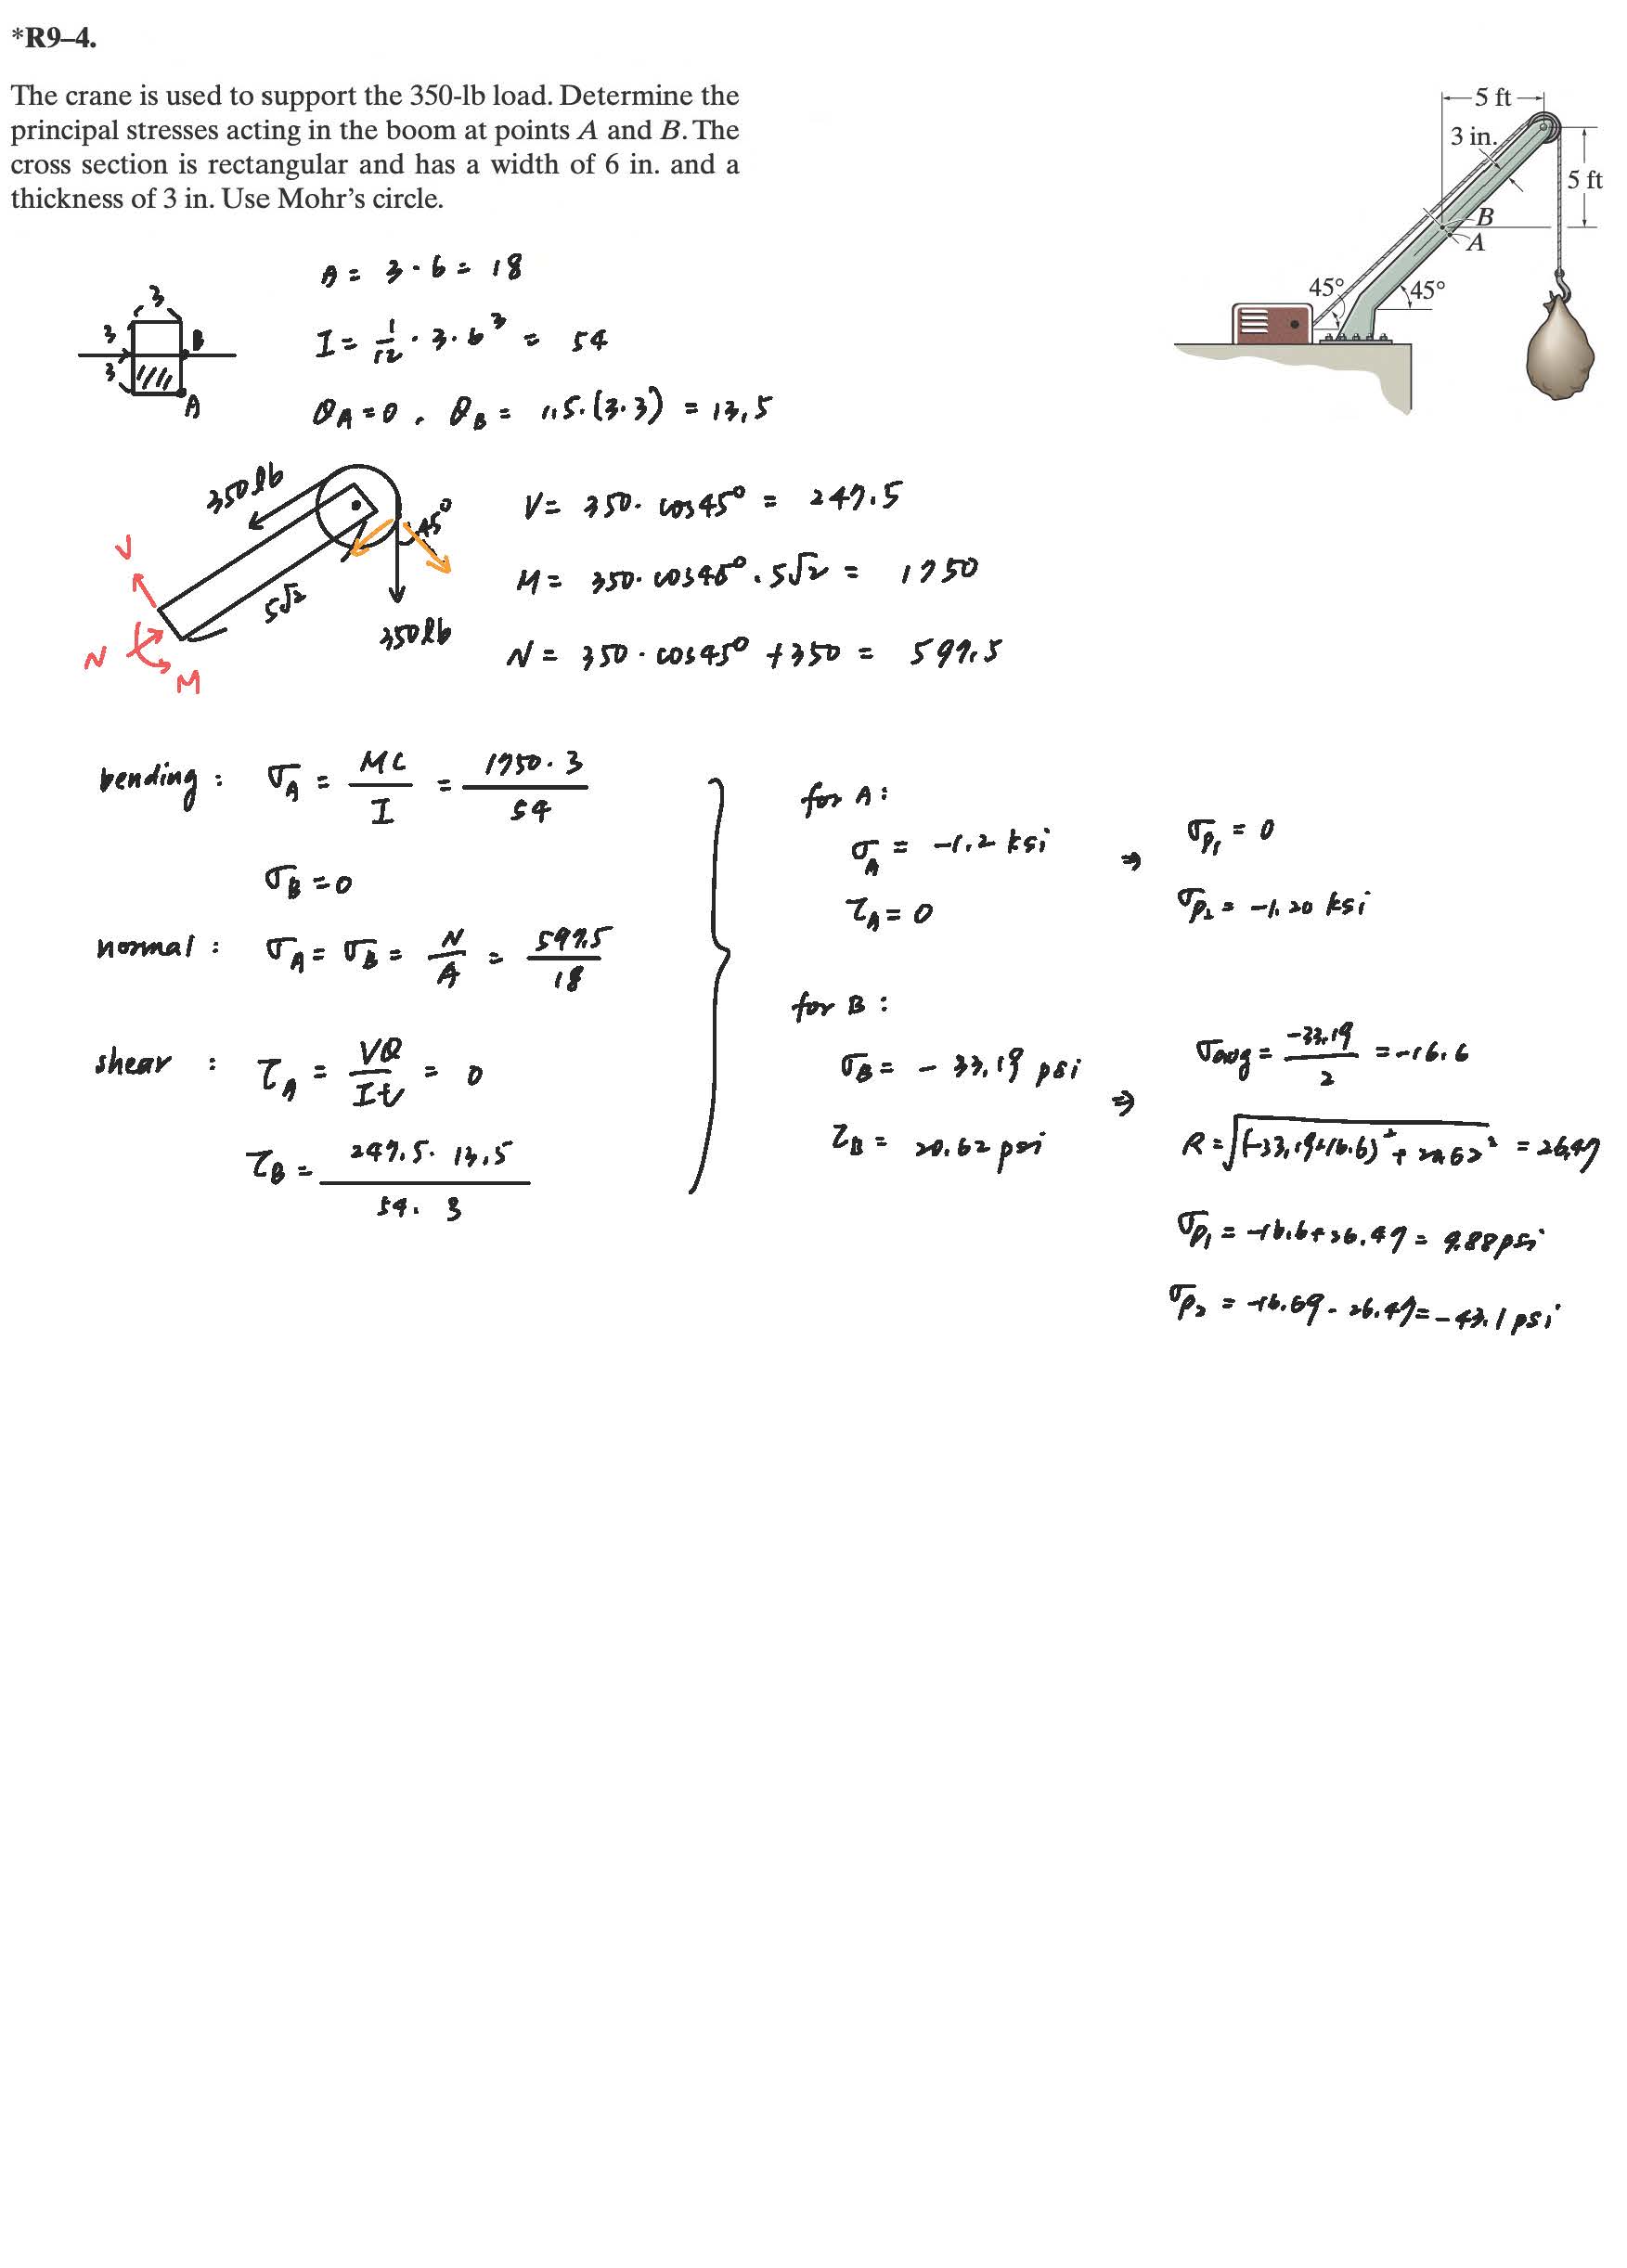 *R9–4.
The crane is used to support the 350-lb load. Determine the
principal stresses acting in the boom at points A and B. The
cross section is rectangular and has a width of 6 in. and a
thickness of 3 in. Use Mohr's circle.
5 ft
3 in.
5 ft
B
A
45°
45°
3
3
3
B
A
A = 3 · 6 = 18
I = 1/12 · 3 · 6³ = 54
Q_A = 0 , Q_B = 1.5 · (3·3) = 13,5
350 lb
45°
5√2
350 lb
V
N
M
V = 350 · cos45° = 247.5
M = 350 · cos45° · 5√2 = 1750
N = 350 · cos45° + 350 = 597.5
bending : σ_A = MC/I = 1750·3/54
σ_B = 0
normal : σ_A = σ_B = N/A = 597.5/18
shear : τ_A = VQ/It = 0
τ_B = 247.5 · 13.5/54 · 3
for A :
σ_A = -1.2 ksi
τ_A = 0
⇒
σ_P₁ = 0
σ_P₂ = -1.20 ksi
for B :
σ_B = - 33.19 psi
τ_B = 20.62 psi
⇒
σ_avg = -33.19/2 = -16.6
R = √(-33.19+16.6)² + 20.62² = 26.47
σ_P₁ = -16.6 + 26.47 = 9.88 psi
σ_P₂ = -16.69 - 26.47 = -43.1 psi